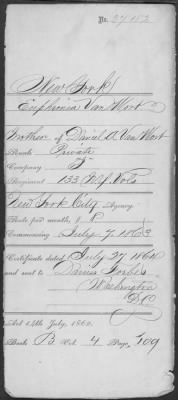 No. 27,152
New York
Euphemia Van Wort
Mother of Daniel A Van Wort
Rank Private
Company F
Regiment 133 N.Y. Vols
New York City Agency
Rate per month, $ 8
Commencing July 7 1863
Certificate dated July 27 1864
and sent to Darius Forbes
Washington
D.C.
Act 14th July, 1862.
Book B Vol. 4 Page 109